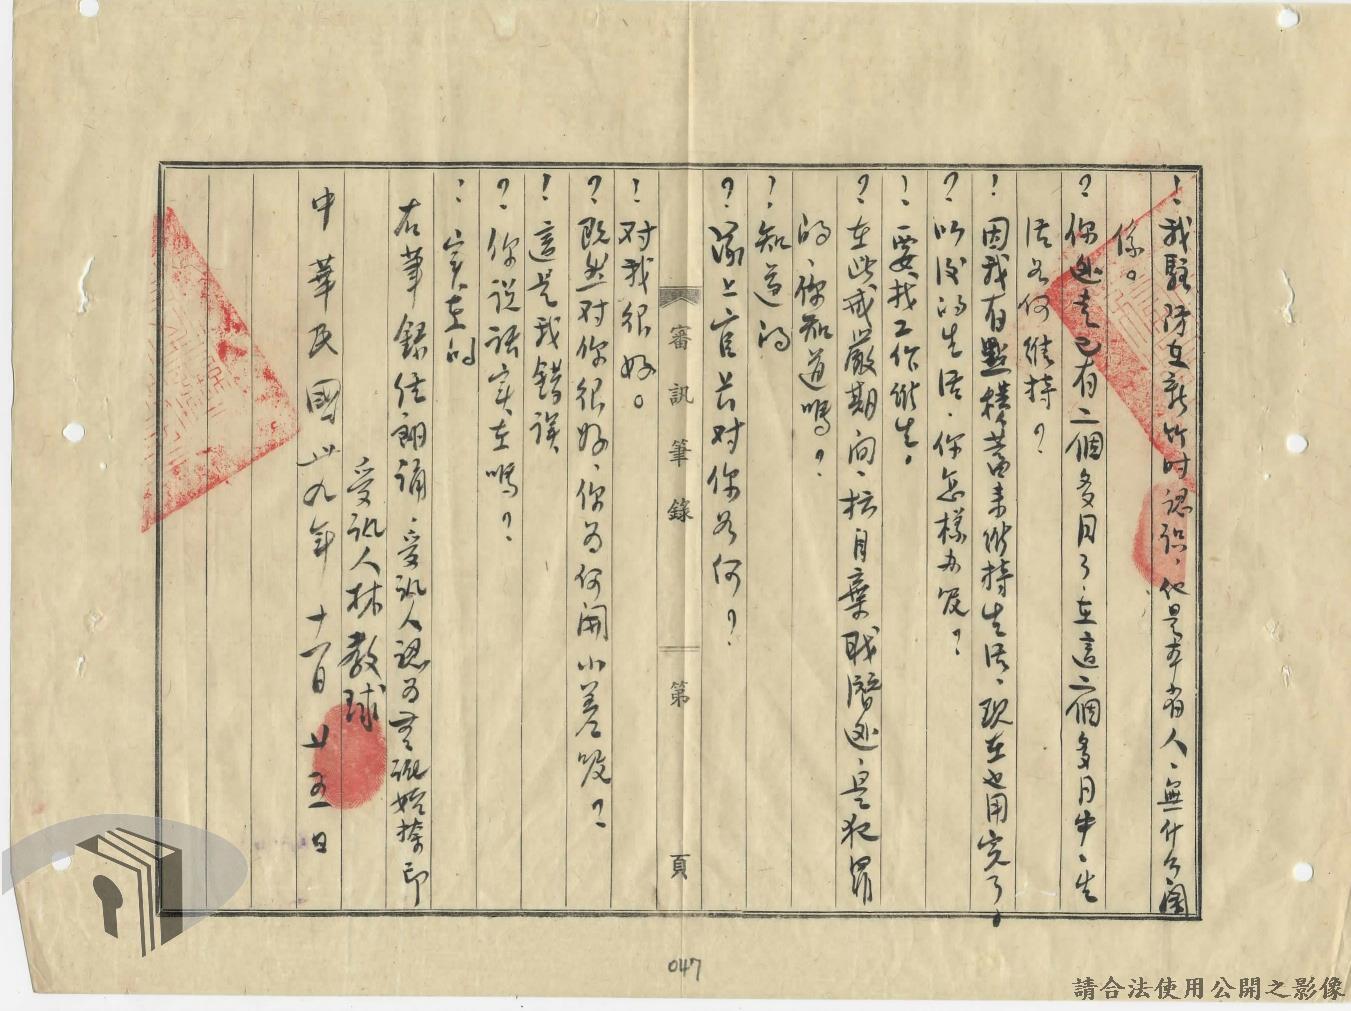 ！我駐防在新竹时認识，他是本省人，無什么関
係。
？你逃走已有二個多月了，在這二個多月中，生
活为何維持？
！因我有點積蓄来維持生活，现在也用完了，
？以後的生活，你怎樣办呢？
！要找工作維生。
？在此戒嚴期间，擅自棄职潛逃，是犯罪
的，你知道嗎？
！知道的
？隊上官长对你为何？
！对我很好。
審訊筆錄 第 頁
？既然对你很好，你为何開小差呢？
！這是我錯误
？你说话实在嗎？
！实在的
右筆錄経朗诵，受讯人認为無訛始捺印
受讯人林教球
中華民國卅九年十一月廿五日
047
請合法使用公開之影像